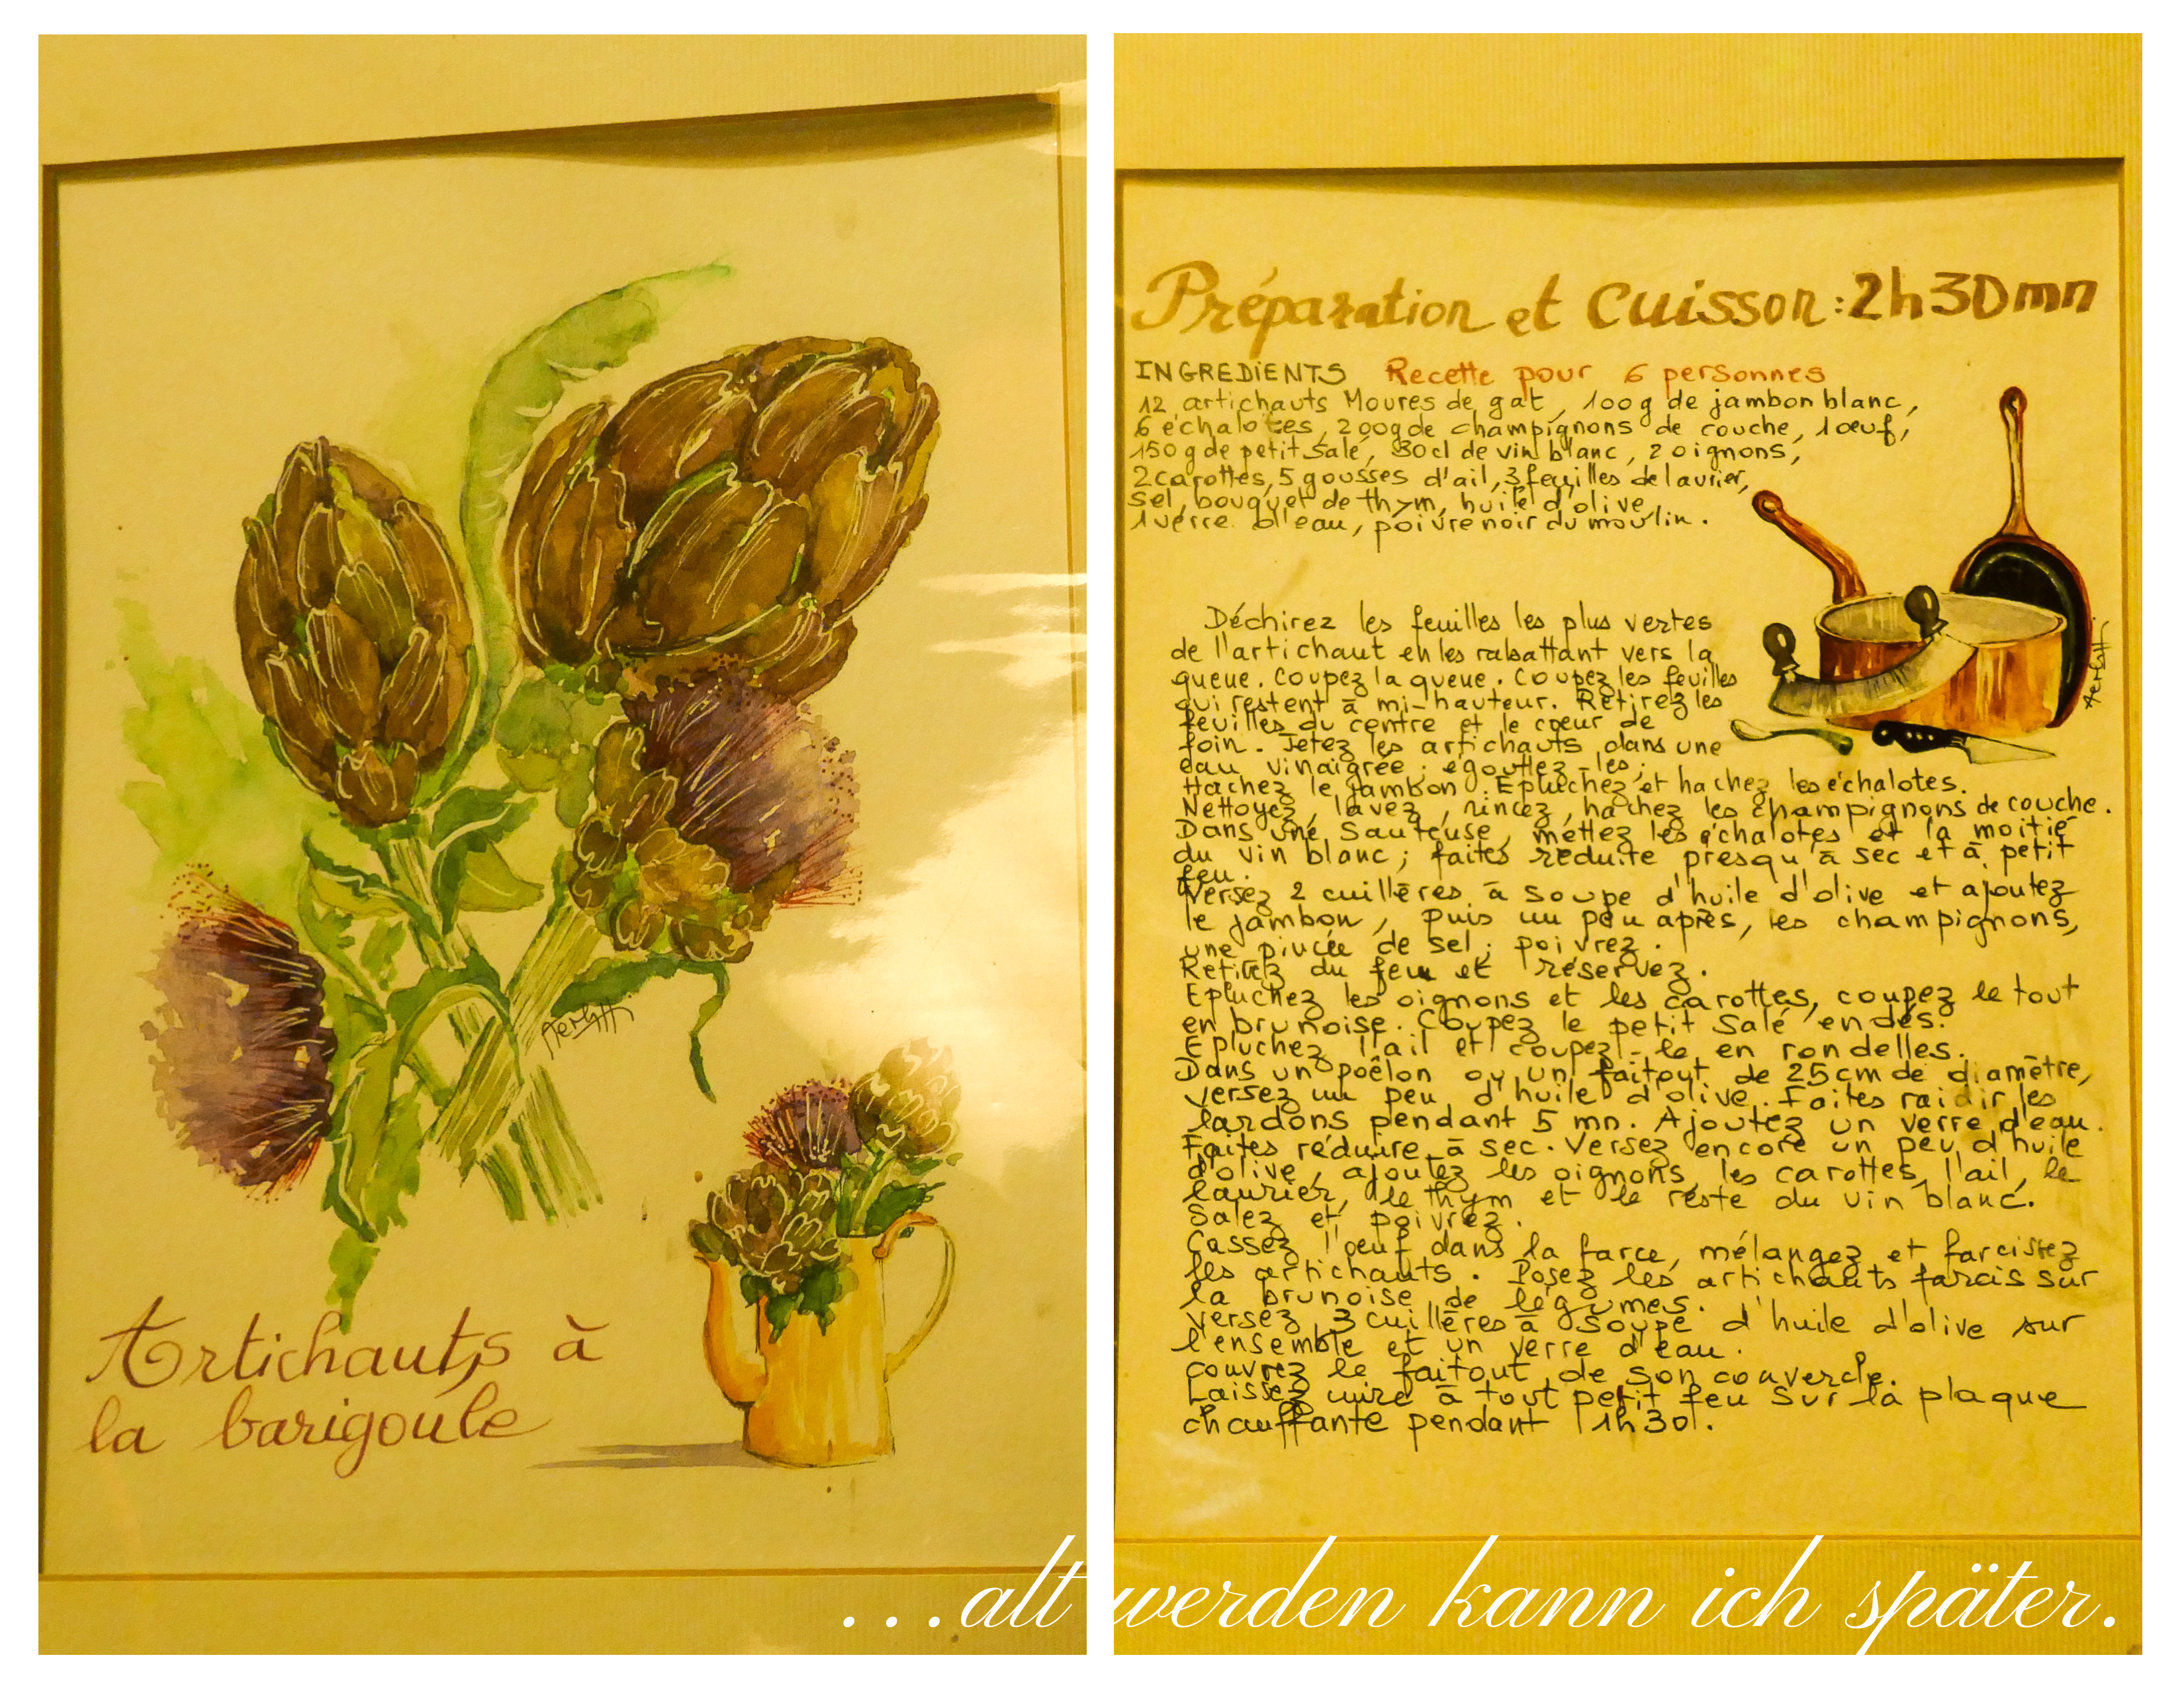 Artichauts à
la barigoule
Préparation et Cuisson : 2h30mn
INGREDIENTS Recette pour 6 personnes
12 artichauts Moures de gat, 100g de jambon blanc,
6 échalotes, 200g de champignons de couche, 1 œuf,
150 g de petit salé, 30cl de vin blanc, 2 oignons,
2 carottes, 5 gousses d'ail, 3 feuilles de laurier,
sel, bouquet de thym, huile d'olive,
1 verre d'eau, poivre noir du moulin.
Déchirez les feuilles les plus vertes
de l'artichaut en les rabattant vers la
queue. Coupez la queue. Coupez les feuilles
qui restent à mi-hauteur. Retirez les
feuilles du centre et le cœur de
foin. Jetez les artichauts dans une
eau vinaigrée ; égouttez-les ;
Hachez le jambon. Epluchez et hachez les échalotes.
Nettoyez, lavez, rincez, hachez les champignons de couche.
Dans une Sauteuse, mettez les échalotes et la moitié
du vin blanc ; faites réduite presqu'à sec et à petit
feu.
Versez 2 cuillères à soupe d'huile d'olive et ajoutez
le jambon, puis un peu après, les champignons,
une pincée de sel ; poivrez.
Retirez du feu et réservez.
Epluchez les oignons et les carottes, coupez le tout
en brunoise. Coupez le petit Salé en dés.
Epluchez l'ail et coupez-le en rondelles.
Dans un poêlon ou un faitout de 25cm de diamètre,
versez un peu d'huile d'olive. Faites raidir les
lardons pendant 5 mn. Ajoutez un verre d'eau.
Faites réduire à sec. Versez encore un peu d'huile
d'olive, ajoutez les oignons, les carottes, l'ail, le
laurier, le thym et le reste du vin blanc.
Salez et poivrez.
Cassez l'oeuf dans la farce, mélangez et farcissez
les artichauts. Posez les artichauts farcis sur
la brunoise de légumes.
versez 3 cuillères à soupe d'huile d'olive sur
l'ensemble et un verre d'eau.
couvrez le faitout de son couvercle.
Laissez cuire à tout petit feu sur la plaque
chauffante pendant 1h30.
...alt werden kann ich später.